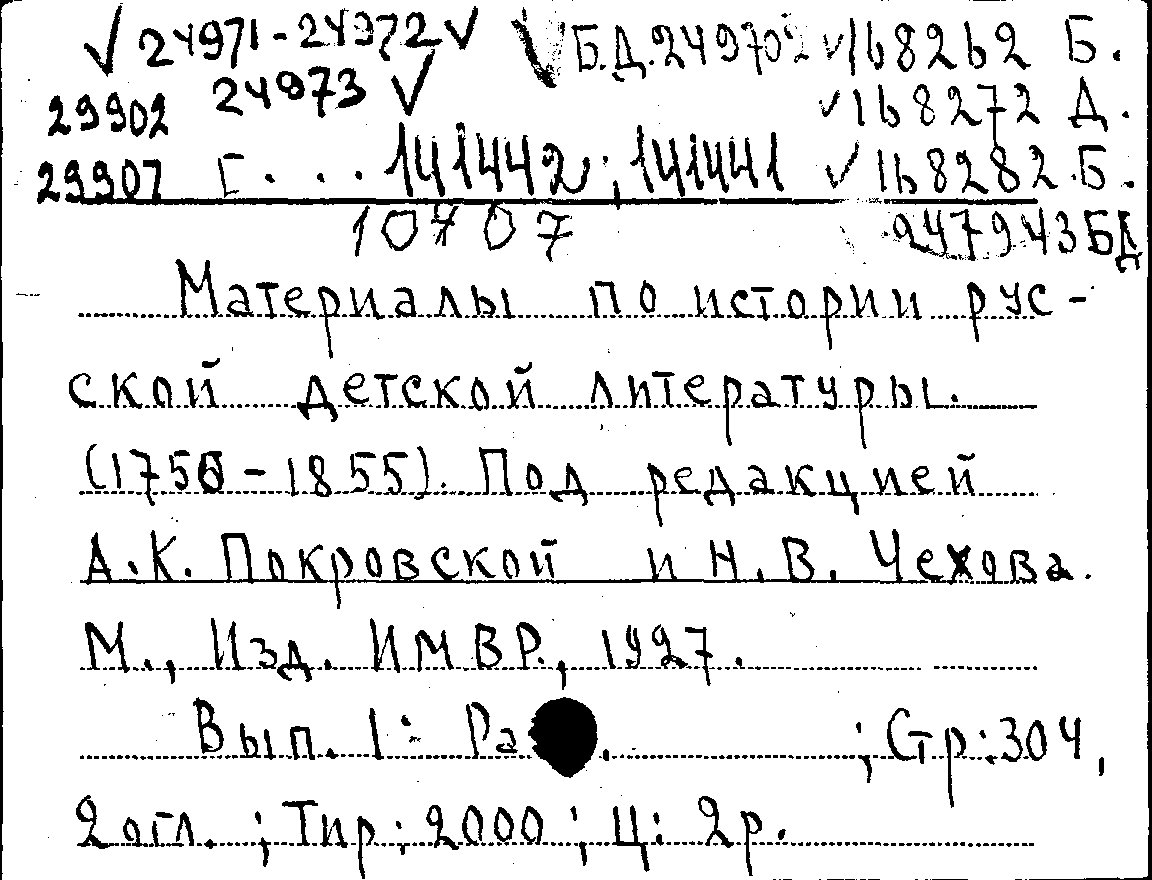 √ 24971-24972 √ √ Б.Д.249702 √ 168262 Б.
29902 24973 √ √ 168272 Д.
29907 Г... 141442; 141441 √ 168282.Б.
10707 247943 БД
Материалы по истории рус-
ской детской литературы.
(1750-1855). Под редакцией
А.К. Покровской и Н.В. Чехова.
М., Изд. ИМВР., 1927.
Вып. 1: ; Стр: 304,
2 огл. ; Тир: 2000 ; Ц: 2р.